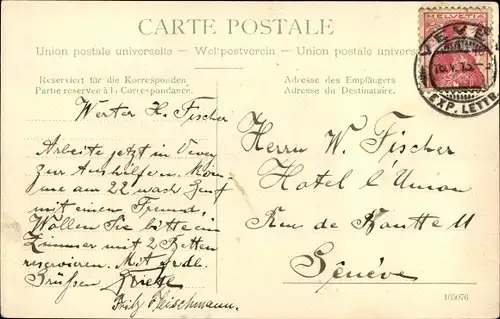 CARTE POSTALE
Union postale universelle — Weltpostverein — Union postale univers
Reserviert für die Korresponden
Partie réservée à la Correspondance.
Adresse des Empfängers
Adresse du Destinataire.
HELVETIA
VEVEY
EXP. LETTR.
Werter H. Fischer
Arbeite jetzt in Vevey
zur Aushülfen. Kom̄
me am 22 nach Genf
mit einem Freund,
Wollen Sie bitte ein
Zimmer mit 2 Betten
reservieren. Mit frdl.
Grüssen
Fritz Fleischmann.
Herrn W. Fischer
Hotel l'Union
Rue de 11
Genève
105076